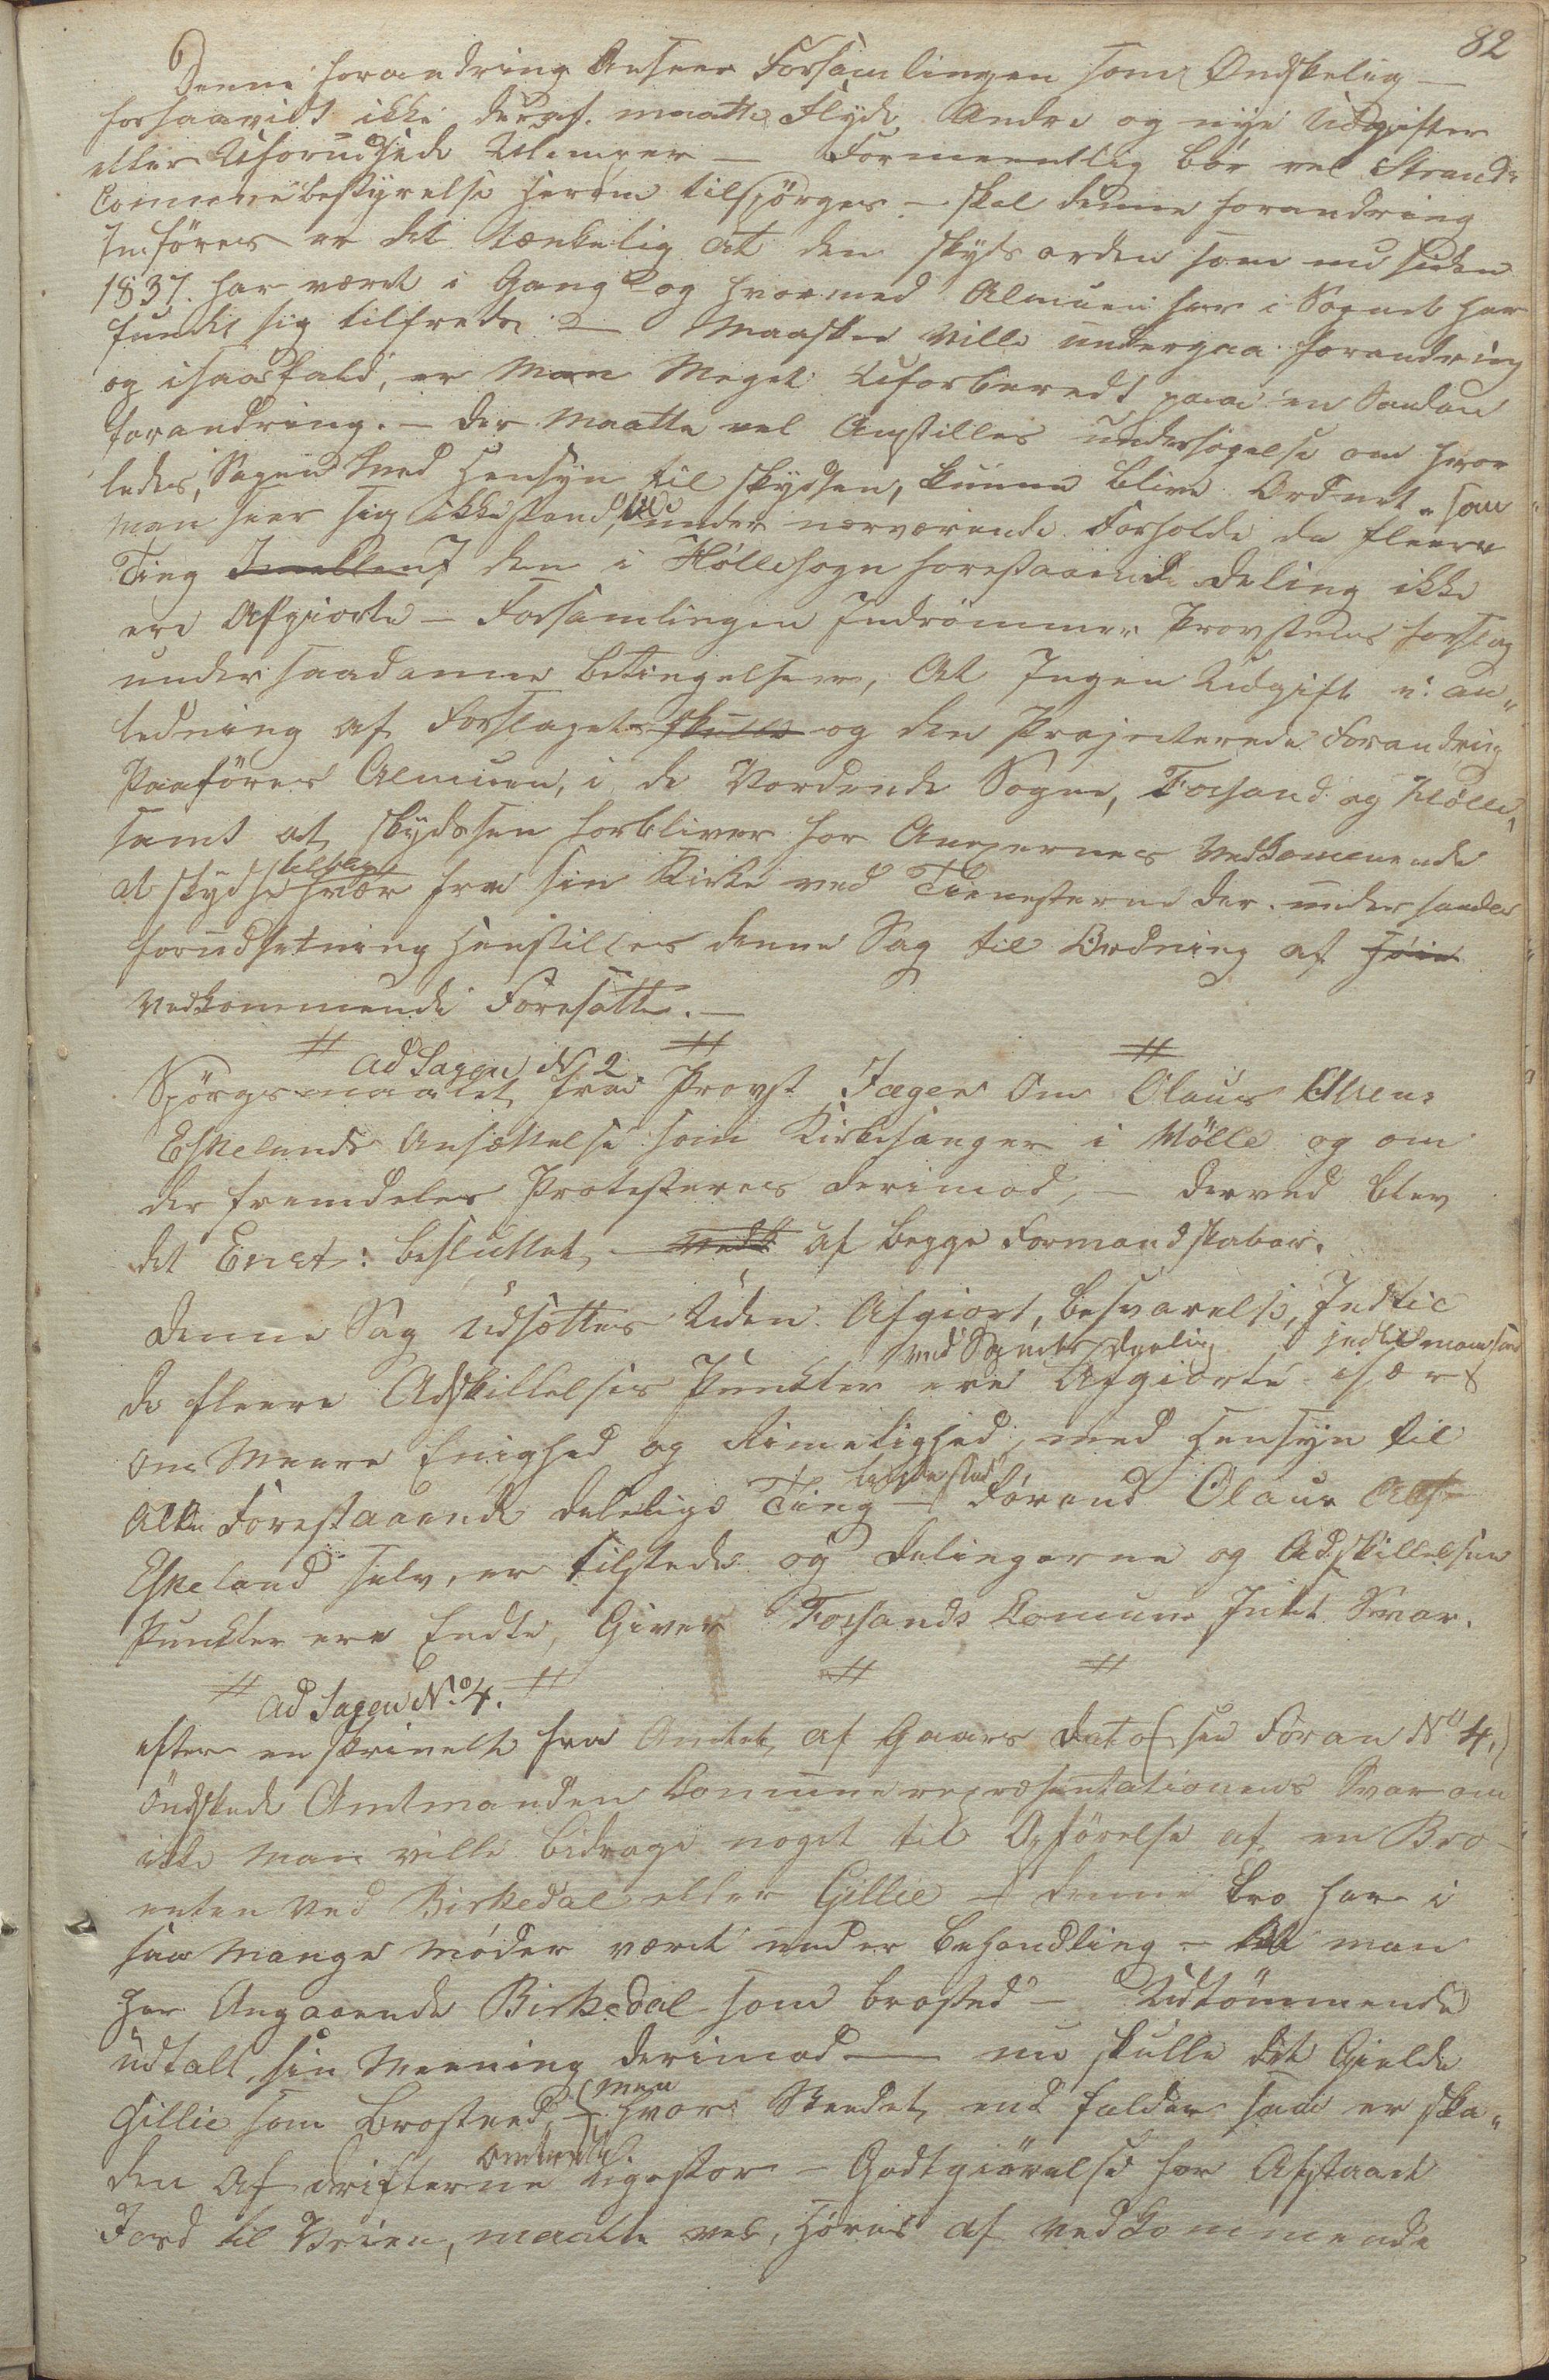 82
Denne forandring Anseer Forsamlingen som Øndskelig —
forsaavidt ikke deraf maatte Flyde Andre og nye Udgifter
eller Uforudsede Ulemper — Formeentlig bør vel Strands
Commune bestyrelse herom tilspörges — skal denne forandring
Indföres er det tænkelig at den skyds orden som nu siden
1837. har været i Gang og hvormed Almuen her i Sognet har
fundet sig tilfreds — Maaskee ville undergaa forandring
og isaafald, er Man Meget Uforberedt paa en Saadan
forandring. — Der Maatte vel Anstilles undersögelse om hvor
ledes, Sagen med Hensyn til skydsen, kunne blive Ordnet. som
man seer sig ikke istand til under nærværende Forholde da fleere
Ting Imellem den i Höllesogn forestaaende deling ikke
ere Afgiorte — Forsamlingen Indrömmer Provstens forslag
under saadanne betingelser, At Ingen Udgift i an„
ledning af Forslaget skulle og den Projecterede Forandring
Paaföres Almuen, i de Vordende Sogne, Fossand og Hölle,
samt at skydssen forbliver for Angernes vedkommende
at skydse tilbage hver fra sin Kirke ved Tienesterne der. under saadan
forudsetning henstilles denne Sag til Ordning af Höie
vedkommende Foresatte. —
# ad Sagen No 2. # #
Spörgsmaalet fra Provst Jæger om Olaus Olsen
Eskelands Ansættelse som Kirkesanger i Hölle og om
der fremdeles Protesteres derimod, — derved blev
det Enst: besluttet, vedt af begge Formandskaber.
denne Sag udsættes Uden Afgiort, besvarelse, Indtil
de fleere Adskillelses Punkter ved Sognets deeling ere Afgiorte især indtil man seer
om Meere Enighed og Rimelighed, med Hensyn til
Alle Forestaaende delelige Ting — Förend Olaus Ols
Eskeland selv, er tilstede og delingerne og Adskillelsens
Punkter ere Endte, Giver Fossands Commune Intet Svar.
# ad Sagen No. 4. # # #
efter en skrivelse fra Amtet af Gaars dato (see Foran No 4,)
öndskede Amtmanden Communerepræsentationens Svar om
ikke man ville bidrage noget til Opförelse af en Bro
enten ved Birkedal eller Gillie — denne bro har i
saa Mange Möder været under behandling — At man
har Angaaende Birkedal som brosted — Udtömmende
udtalt, sin Meening derimod — nu skulle det Gielde
Gillie som brosteed, — men hvor Steedet end falder saa er ska„
den af drifterne omtrent ligestor — Godtgiörelse for Afstaaet
Jord til Veien, maatte vel, Höres af vedkommende